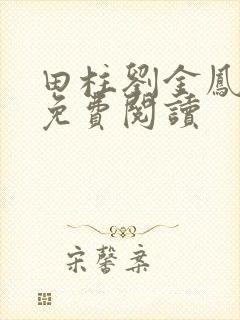 田柱劉金鳳
免費閱讀
宋馨案